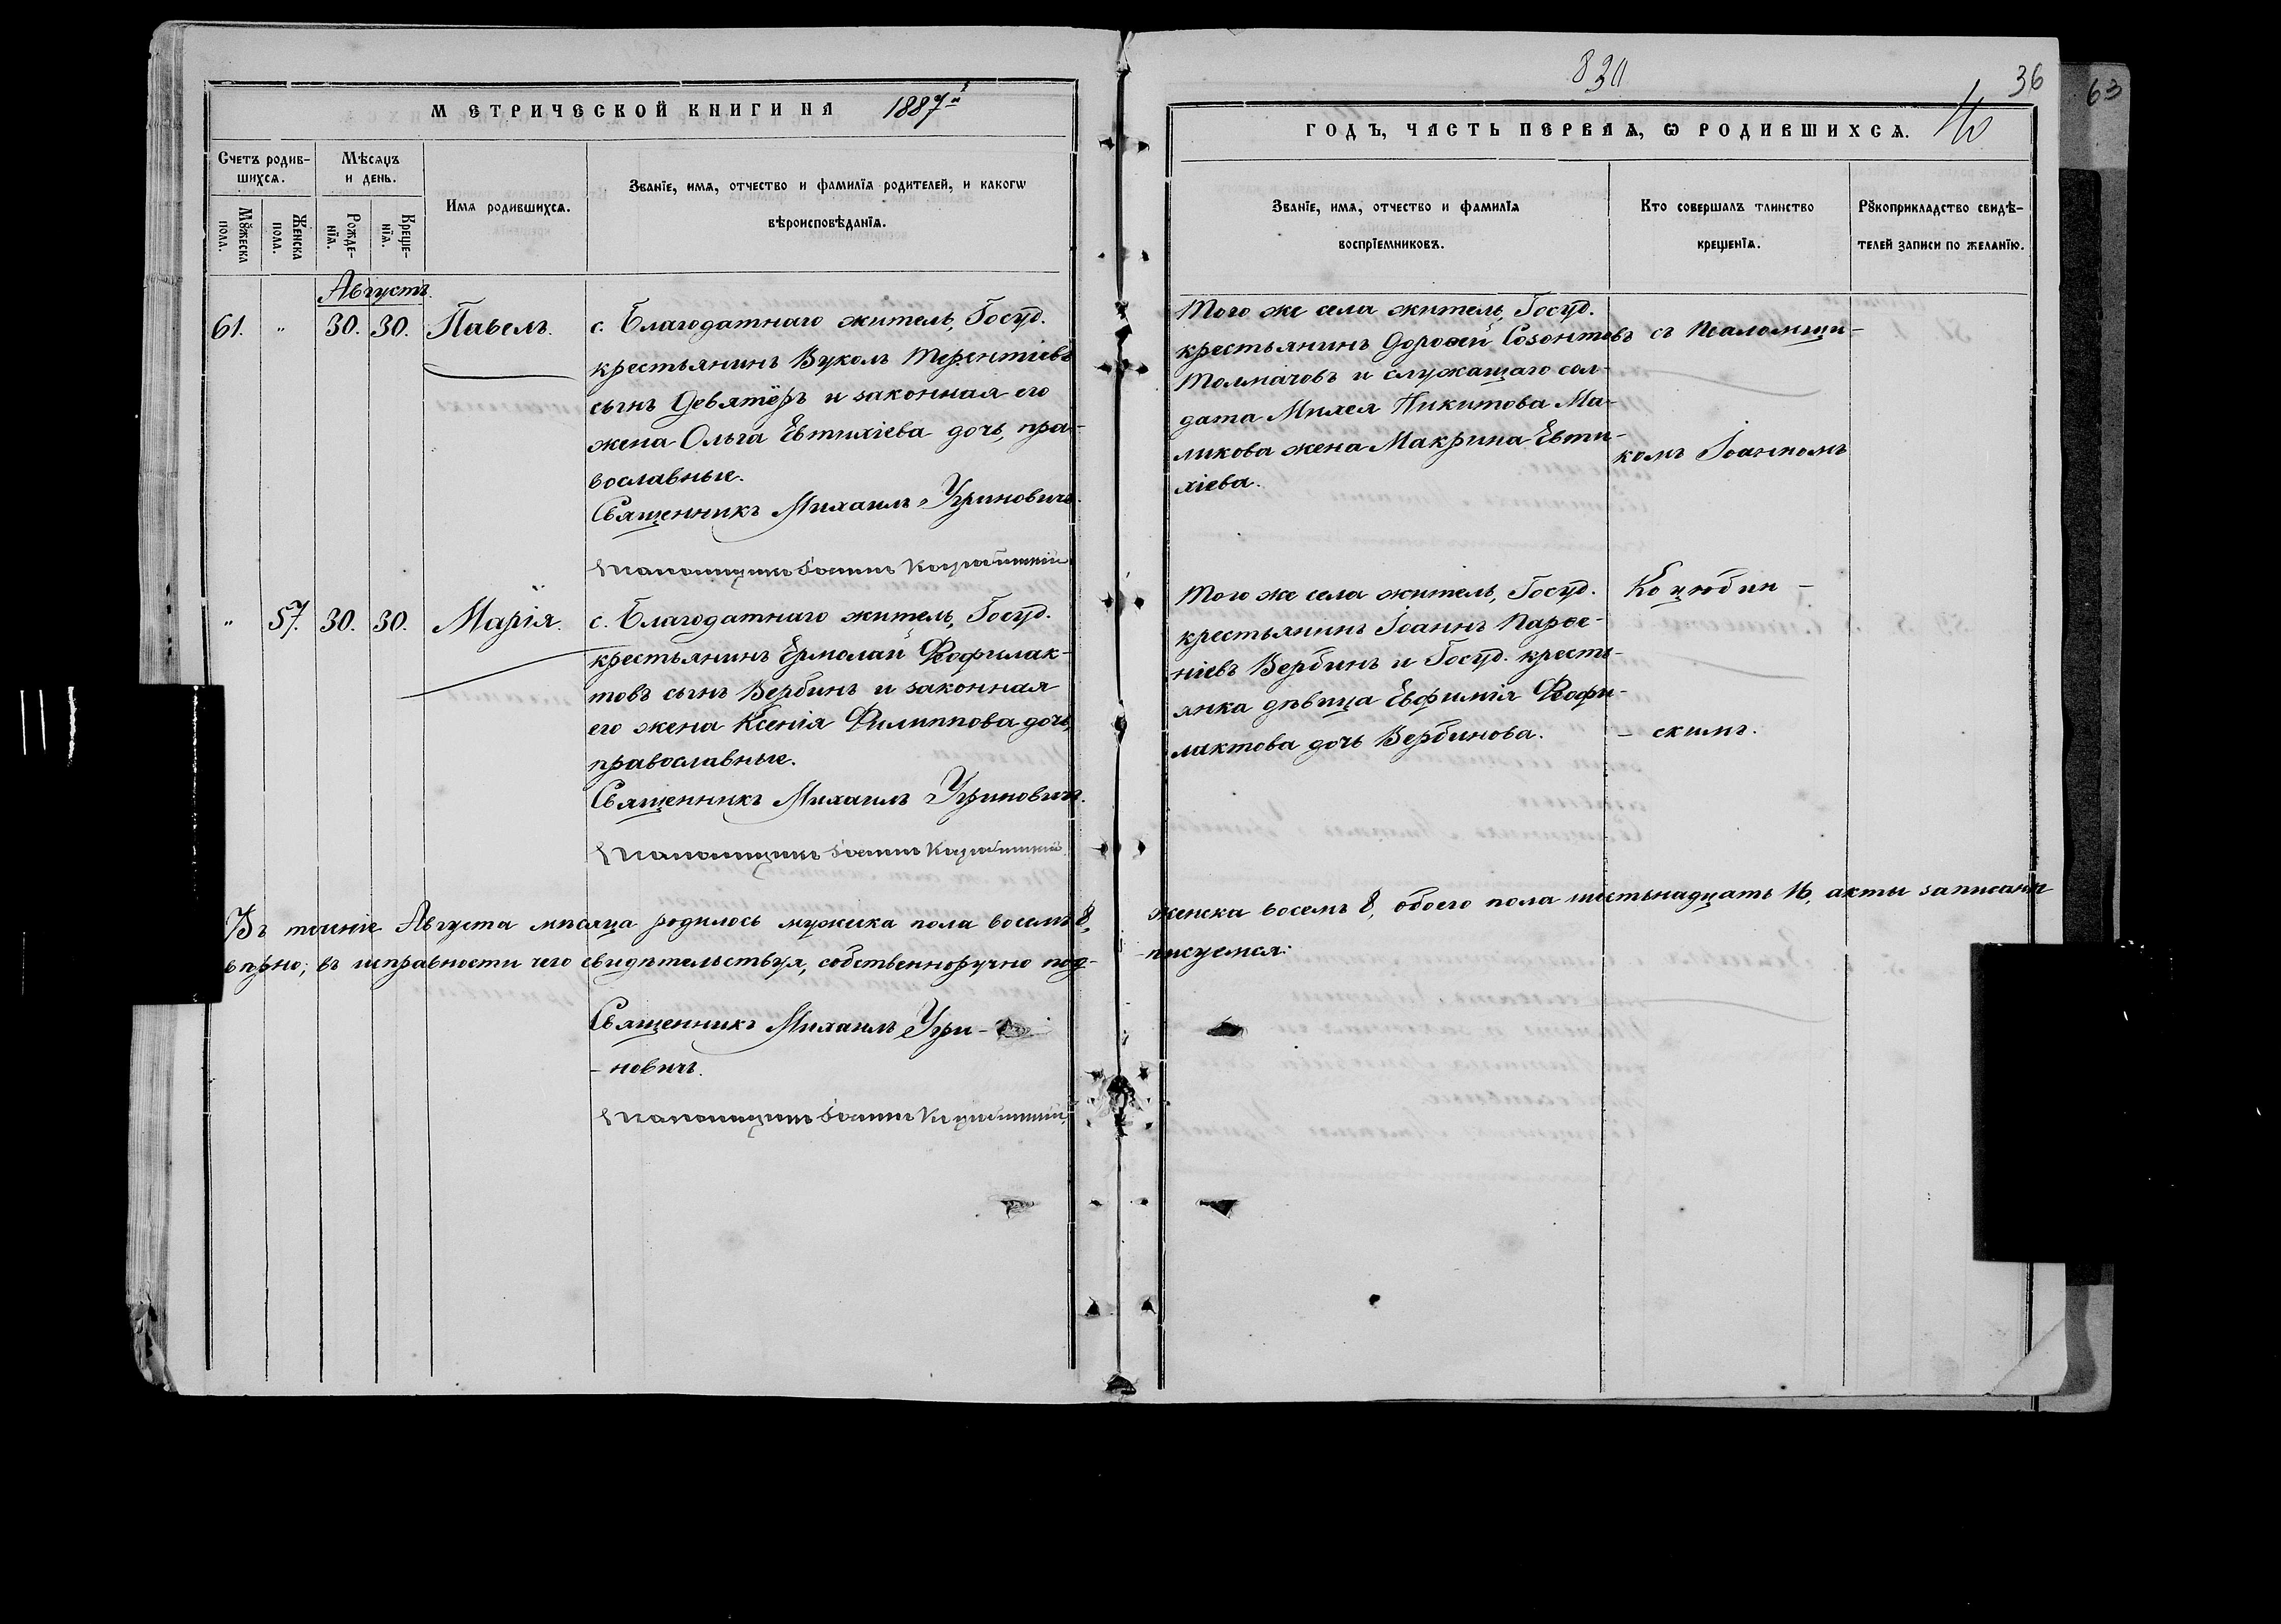 830
36
63
МЕТРИЧЕСКОЙ КНИГИ НА 1887й
ГОДЪ, ЧАСТЬ ПЕРВАЯ, Ѡ РОДИВШИХСѦ.
Счетъ родив-
шихсѧ.
Мѣсѧцъ
и день.
Имѧ родившихсѧ.
Званїе, имѧ, отчество и фамилїѧ родителей, и какогѡ
вѣроисповѣданїѧ.
Мꙋжеска
пола.
Женска
пола.
Рожде-
нїѧ.
Креще-
нїѧ.
Званїе, имѧ, отчество и фамилїѧ
воспрїемниковъ.
Кто совершалъ таинство
крещенїѧ.
Рꙋкоприкладство свидѣ-
телей записи по желанїю.
Августъ.
61. " 30. 30. Павелъ.
с. Благодатнаго житель, Госуд.
крестьянинъ Вуколъ Терентіевъ
сынъ Девятёръ и законная его
жена Ольга Евтихіева дочь, пра-
вославные.
Священникъ Михаилъ Угриновичъ.
Псаломщикъ Іоаннъ Коцюбинскій
Того же села житель, Госуд.
крестьянинъ Дороѳей Созонтовъ
Толмачовъ и служащаго сол-
дата Михея Никитова Ма-
ликова жена Макрина Евти-
хіева.
съ псаломщи-
комъ Іоанномъ
Коцюбин-
- скимъ.
" 57. 30. 30. Марія.
с. Благодатнаго житель, Госуд.
крестьянинъ Ермолай Ѳеофилак-
товъ сынъ Вербинъ и законная
его жена Ксенія Филиппова дочь,
православные.
Священникъ Михаилъ Угриновичъ.
Псаломщикъ Іоаннъ Коцюбинскій
Того же села житель, Госуд.
крестьянинъ Іоаннъ Парѳе-
ніевъ Вербинъ и Госуд. кресть-
янка дѣвица Евфимія Ѳеофи-
лактова дочь Вербинова.
Въ теченіе Августа мѣсяца родилось мужеска пола восемь 8, женска восемь 8, обоего пола шестьнадцать 16, акты записаны
вѣрно; въ исправности чего свидѣтельствуя, собственноручно под-писуемся:
Священникъ Михаилъ Угри-
- новичъ.
Псаломщикъ Іоаннъ Коцюбинскій